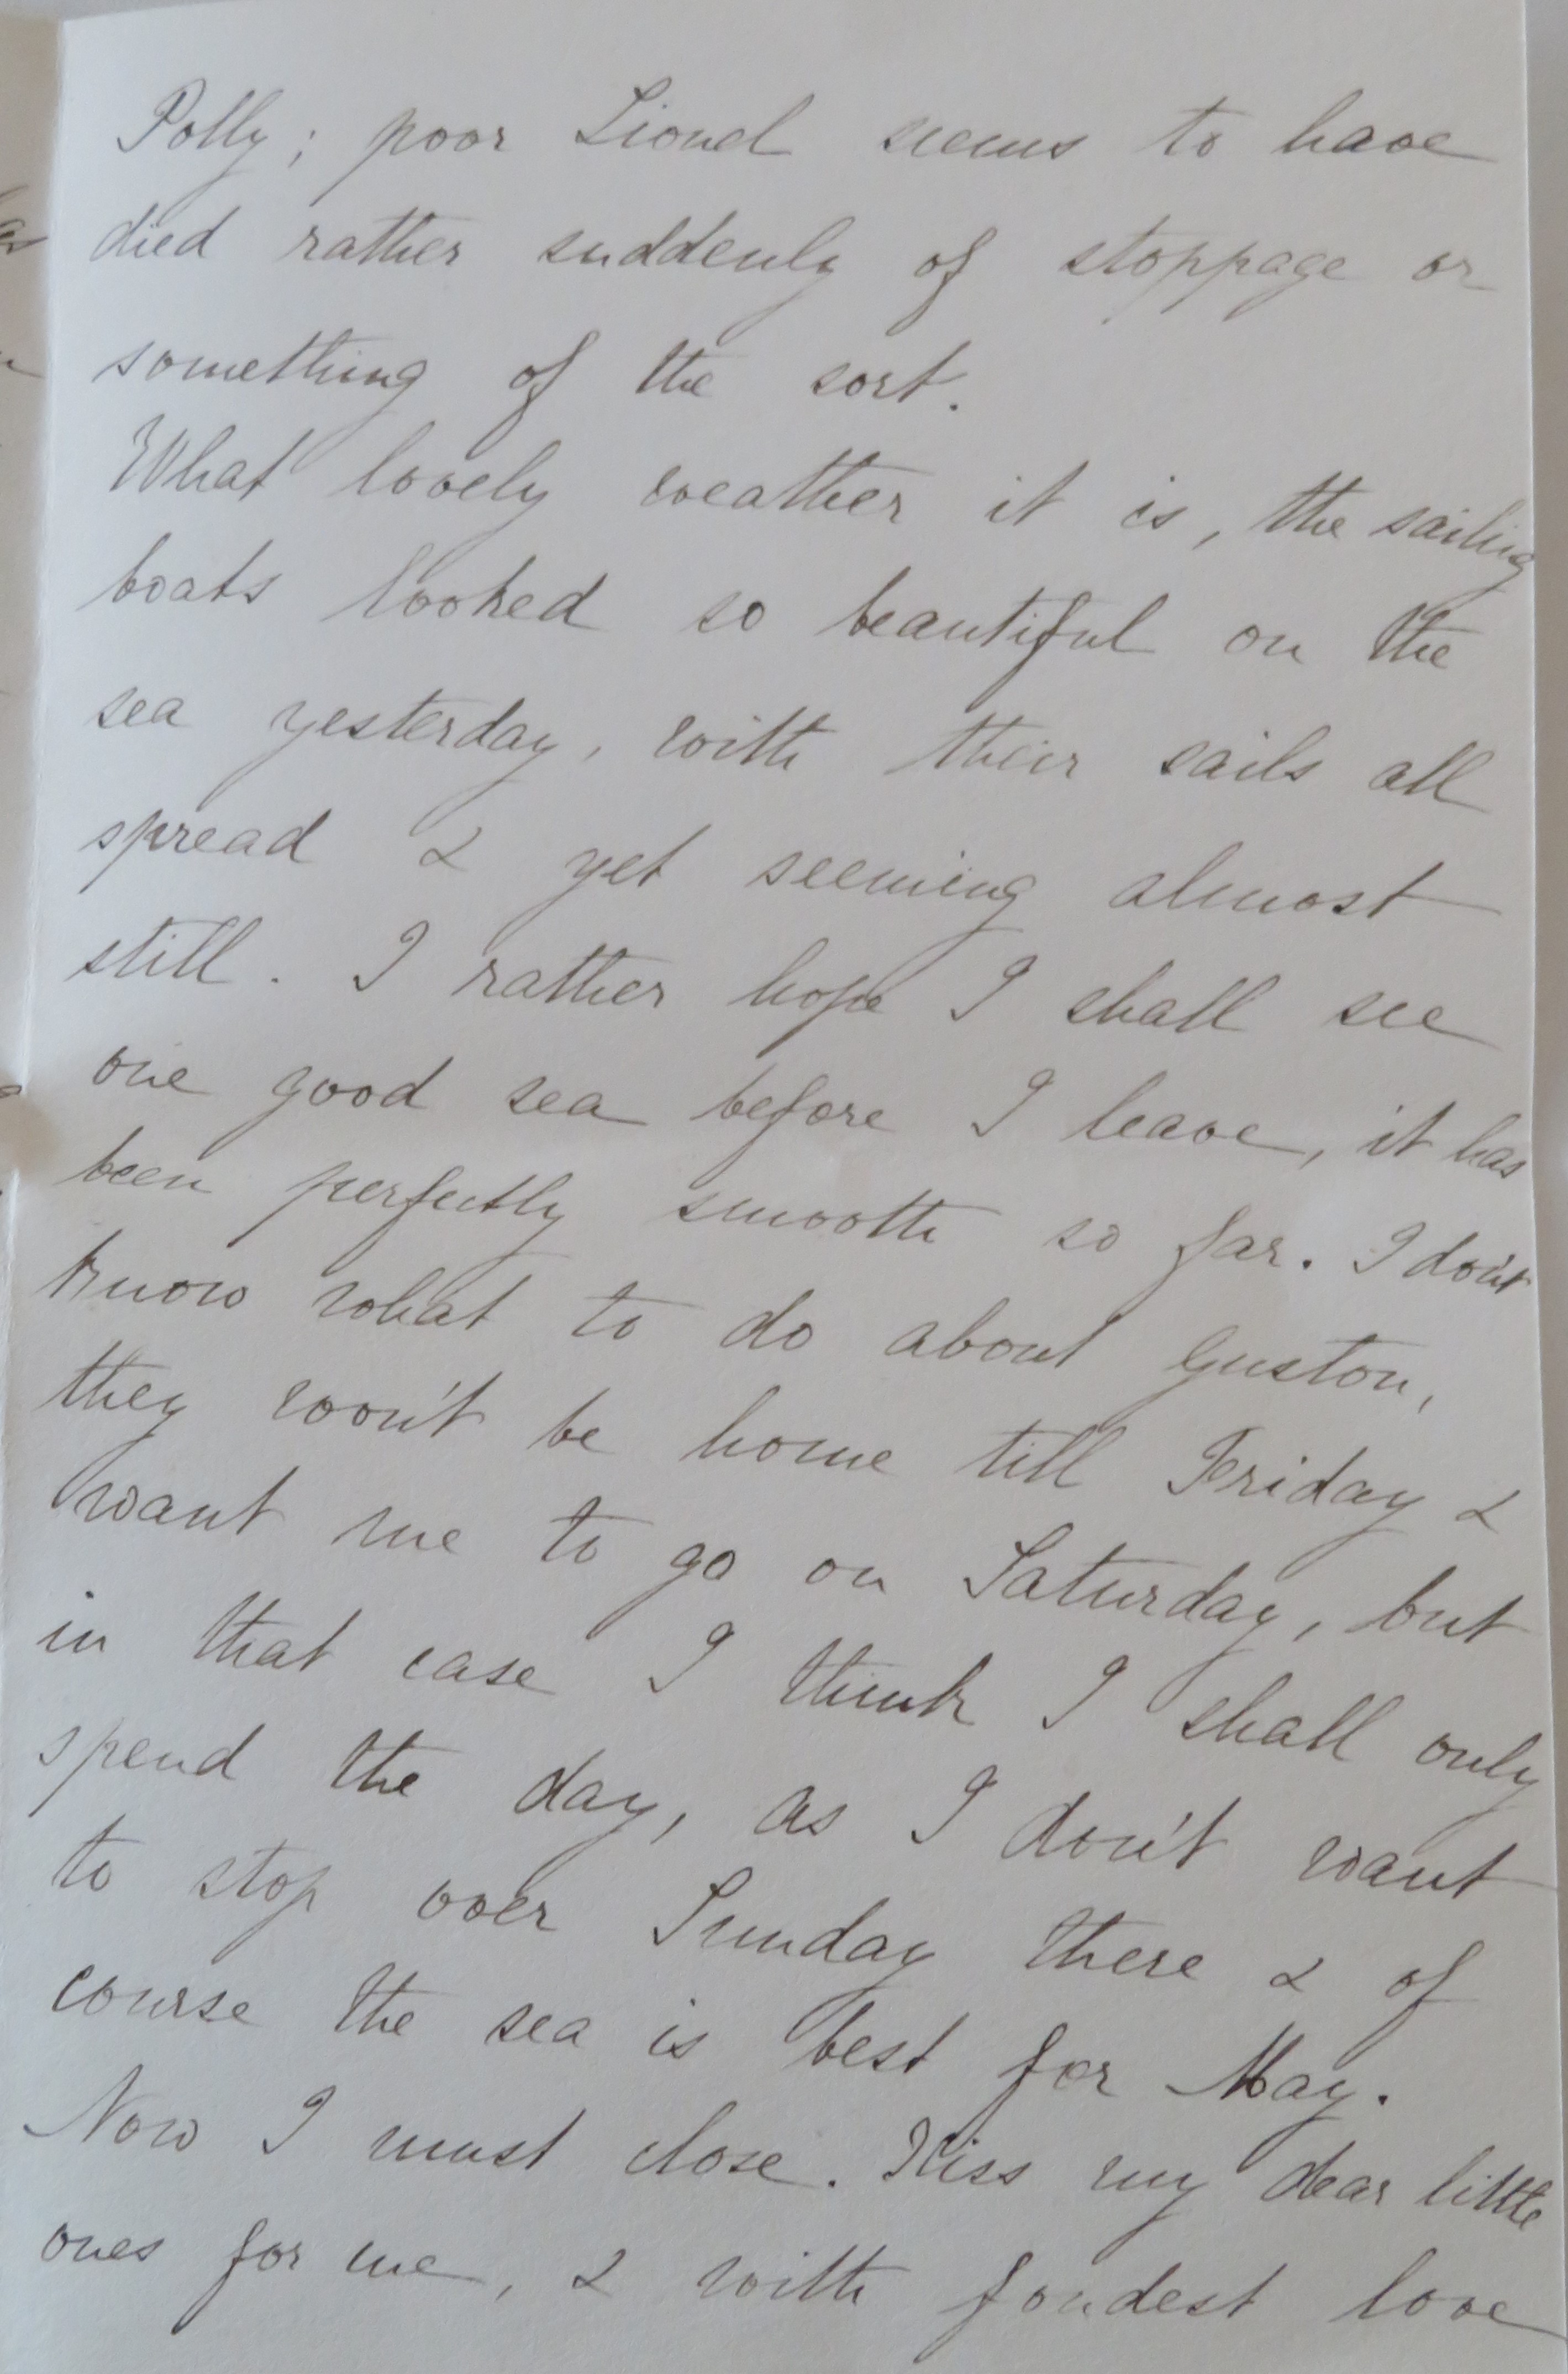 Polly; poor Lionel seems to have
died rather suddenly of stoppage or
something of the sort.
What lovely weather it is, the sailing
boats looked so beautiful on the
sea yesterday, with their sails all
spread & yet seeming almost
still. I rather hope I shall see
one good sea before I leave, it has
been perfectly smooth so far. I don't
know what to do about Guston,
they won't be home till Friday &
want me to go on Saturday, but
in that case I think I shall only
spend the day, as I don't want
to stop over Sunday there & of
course the sea is best for May.
Now I must close. Kiss my dear little
ones for me, & with fondest love